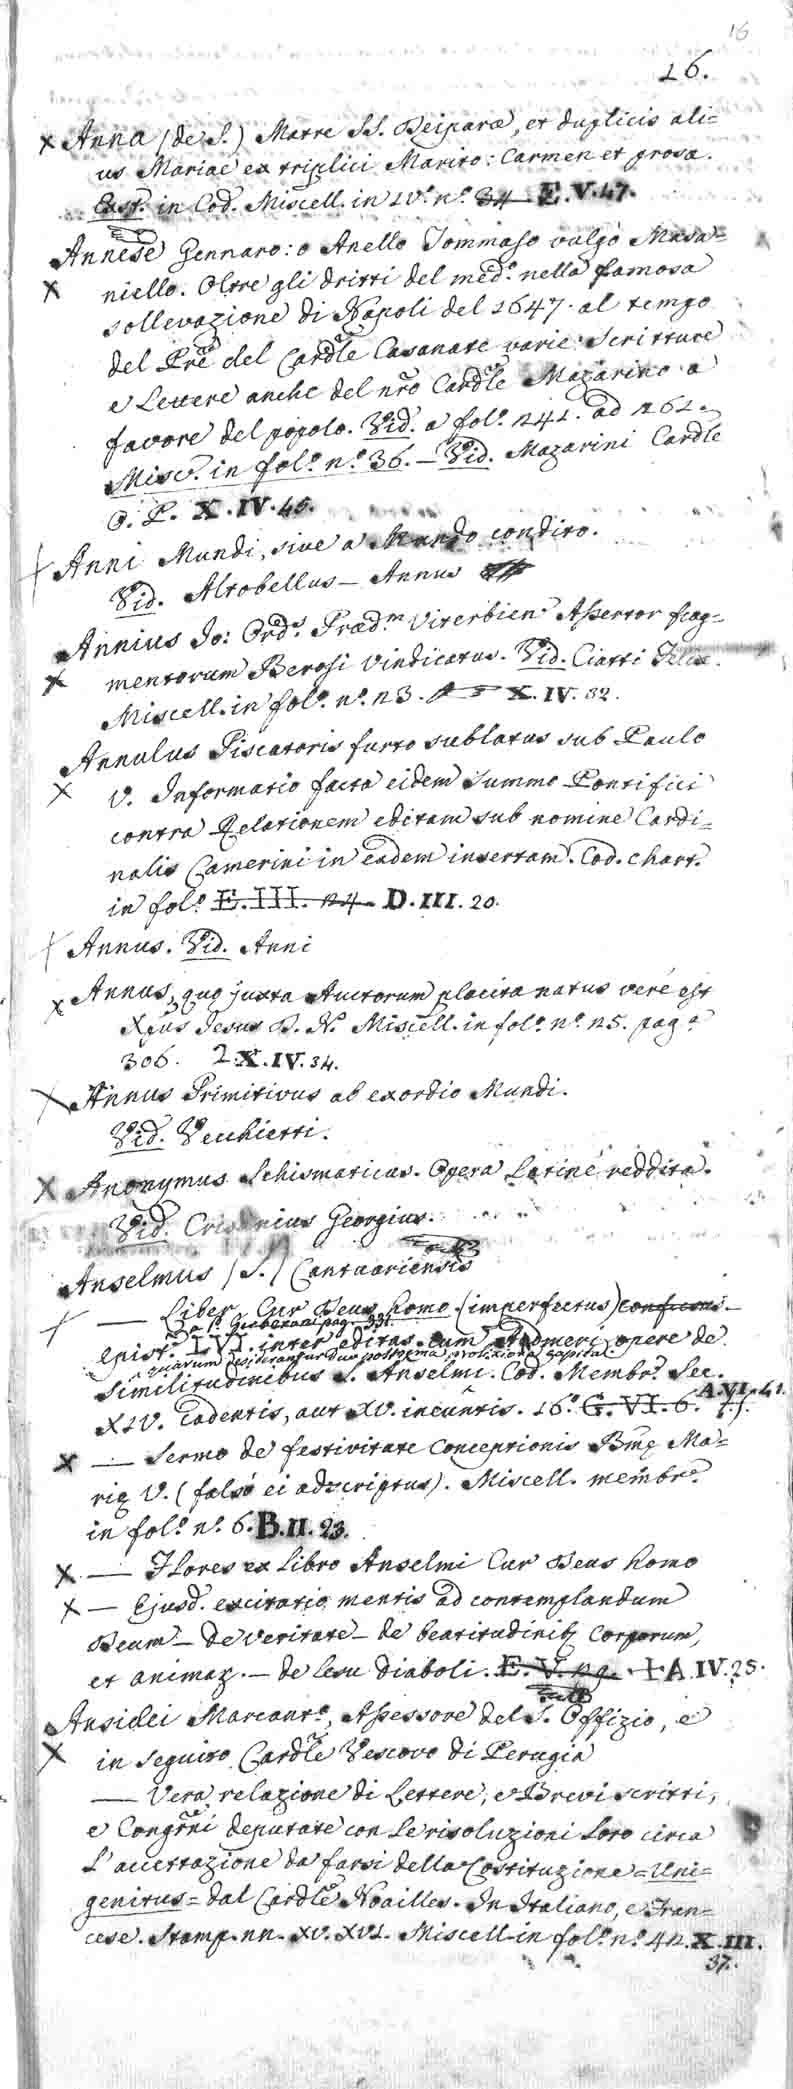 16
16.
Anna (de S.) Matre SS. Deiparæ, et duplicis ali=
us Mariae ex triplici Marito: Carmen et prosa.
Exst. in Cod. Miscell. in IV.º n.º 34 E.V.47.
Annese Gennaro: o Anello Tommaso vulgo Masa=
niello. Oltre gli dritti del med.º nella famosa
sollevazione di Napoli del 1647. al tempo
del Pre del Cardle Casanate varie Scritture
e Lettere anche del nro Cardle Mazarino a
favore del popolo. Vid. a fol.º 241. ad 261.
Misc. in fol.º n.º 36. – Vid. Mazarini Cardle
O. P. X.IV.45.
Anni Mundi, sive a Mundo condito.
Vid. Altobellus – Annus
Annius Jo: Ord.s Præd.m Viterbien. Assertor frag=
mentorum Berosi vindicatus. Vid. Ciatti Felix.
Miscell. in fol.º n.º 23. X.IV.32.
Annulus Piscatoris furto sublatus sub Paulo
V. Informatio facta eidem Summo Pontifici
contra Relationem editam sub nomine Cardi=
nalis Camerini in eadem insertam. Cod. chart.
in fol.º E.III.24. D.III.20.
Annus. Vid. Anni
Annus, quo juxta Auctorum placita natus verè est
Xpus Jesus D. N. Miscell. in fol.º n.º 25. pag.ª
306. 2.X.IV.34.
Annus Primitivus ab exordio Mundi.
Vid. Vecchietti.
Anonymus Schismaticus. Opera Latinè reddita.
Vid. Crisanius Georgius.
Anselmus (S.) Cantuariensis
— Liber Cur Deus homo (imperfectus)
pag. 391.
Epist. LVI. inter editas cum Aedmeri opere de
quarum desiderantur duo postrema, prolixiora capitula.
similitudinibus S. Anselmi. Cod. Membr. Sec.
XIV. cadentis, aut XV. ineuntis. 16.º G.VI.6. A.VI.41.
— Sermo de festivitate Conceptionis Bmę Ma=
rię V. (falsò ei adscriptus). Miscell. membr.º
in fol.º n.º 6. B.II.23.
— Flores ex Libro Anselmi Cur Deus homo
— Ejusd. excitatio mentis ad contemplandum
Deum – de veritate – de beatitudinib; Corporum,
et animaʒ. – de Casu diaboli. E.V.29. + A.IV.25.
Ansidei Marcant.º, Assessore del S. Offizio, e
in seguito Cardle Vescovo di Perugia
— Vera relazione di Lettere, e Brevi scritti,
e Congrni deputate con le risoluzioni loro circa
l'accettazione da farsi della Costituzione =Uni=
genitus= dal Cardle Noailles. In Italiano, e Fran=
cese. Stamp. nn. XV. XVI. Miscell. in fol.º n.º 42. X.III.
37.